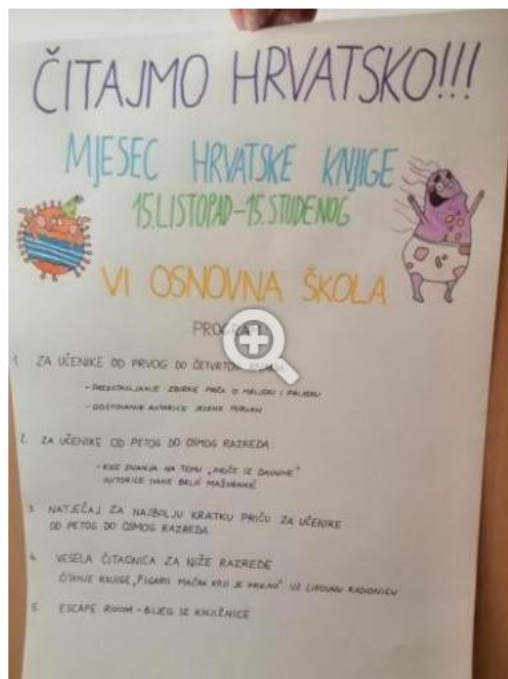 ČITAJMO HRVATSKO!!!
MJESEC HRVATSKE KNJIGE
15.LISTOPAD-15.STUDENOG
VI OSNOVNA ŠKOLA
1. ZA UČENIKE OD PRVOG DO ČETVRTOG
- PREDSTAVLJANJE ZBIRKE PRIČA O
- GOSTOVANJE AUTORICE JELENE
2. ZA UČENIKE OD PETOG DO OSMOG RAZREDA:
- KVIZ ZNANJA NA TEMU „PRIČE IZ DAVNINE"
AUTORICE IVANE BRLIĆ MAŽURANIĆ
3. NATJEČAJ ZA NAJBOLJU KRATKU PRIČU ZA UČENIKE
OD PETOG DO OSMOG RAZREDA
4. VESELA ČITAONICA ZA NIŽE RAZREDE
ČITANJE KNJIGE „FIGARO MAČAK KOJI JE HRKAO" UZ LIKOVNU RADIONICU
5. ESCAPE ROOM - BIJEG IZ KNJIŽNICE